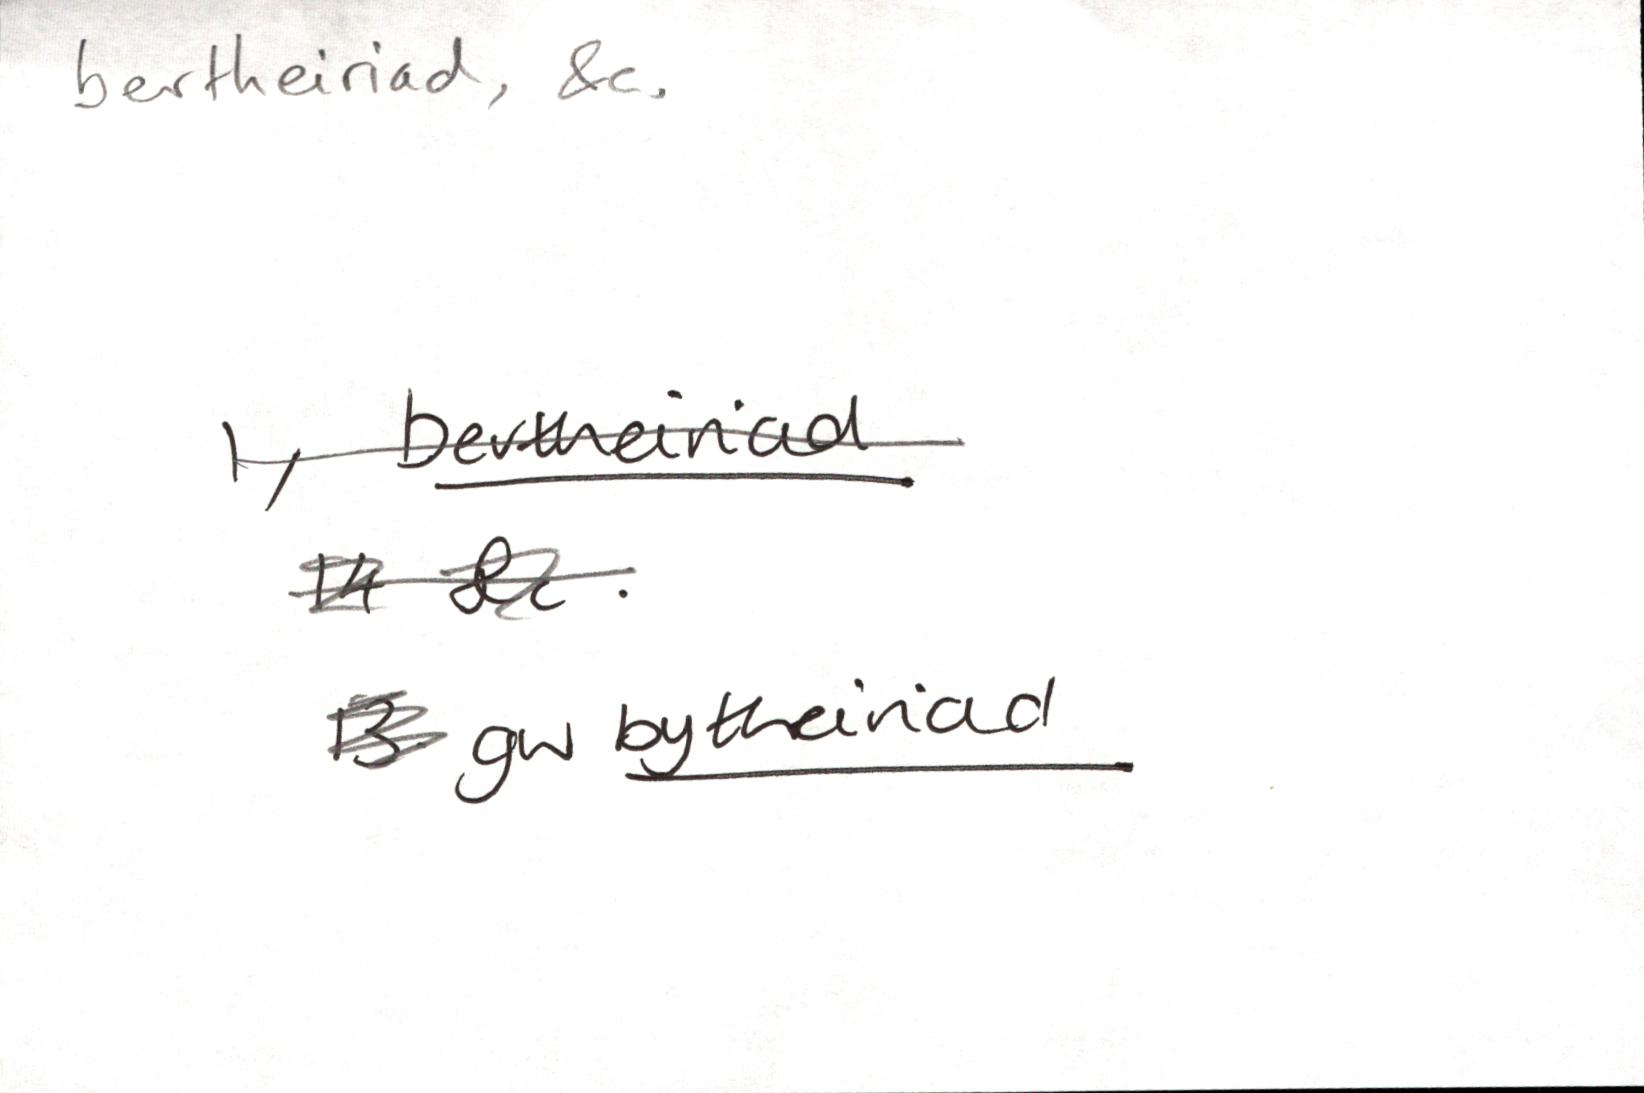 bertheiriad, &c.
1, bertheiriad
14 &c.
13. gw bytheiriad